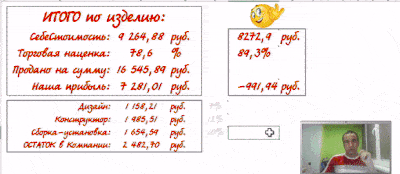 ИТОГО по изделию:
СебеСтоимость: 9 264,88 руб. 8272,9 руб.
Торговая наценка: 78,6 % 89,3%
Продано на сумму: 16 545,89 руб.
Наша прибыль: 7 281,01 руб. -991,94 руб.
Дизайн: 1 158,21 руб.
Конструктор: 1 485,51 руб.
Сборка-установка: 1 654,59 руб.
ОСТАТОК в Компании: 2 482,70 руб.